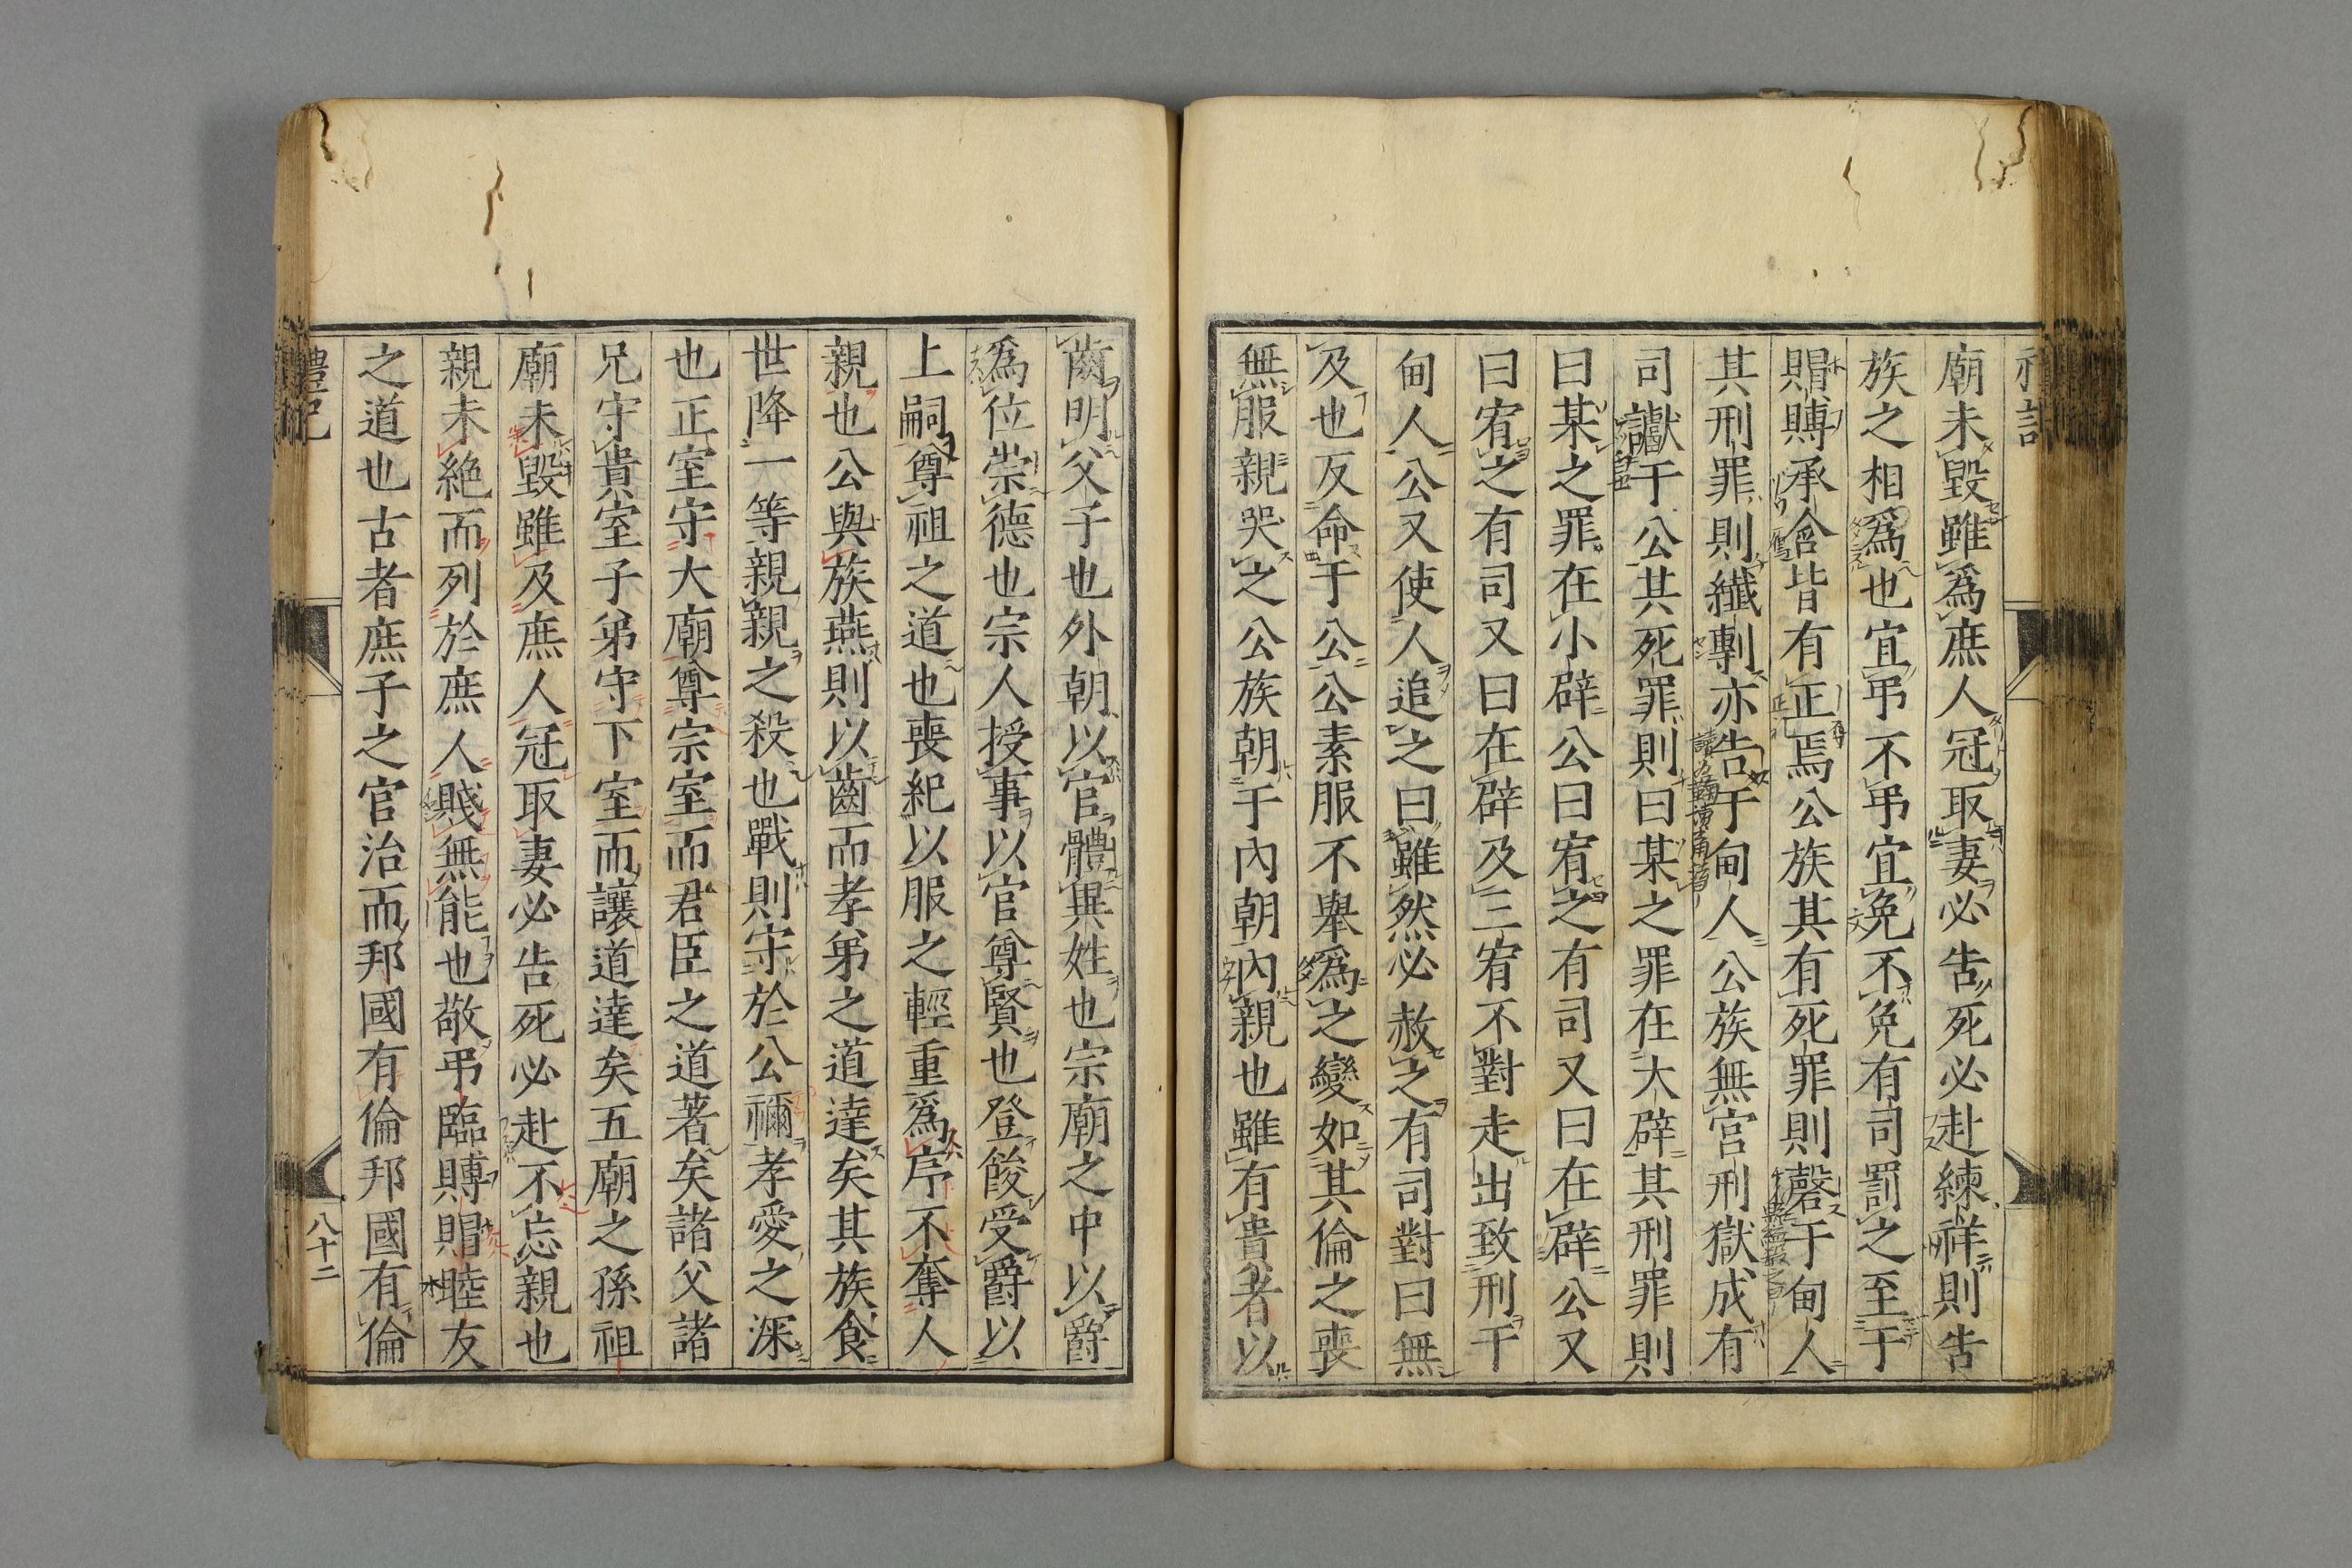 廟未毀雖爲庶人冠取妻必告死必赴練祥則告
族之相爲也宜弔不弔宜免不免有司罰之至于
賵賻承含皆有正焉公族其有死罪則磬于甸人
其刑罪則纖剸亦告于甸人公族無宮刑獄成有
司讞于公其死罪則曰某之罪在大辟其刑罪則
曰某之罪在小辟公曰宥之有司又曰在辟公又
曰宥之有司又曰在辟及三宥不對走出致刑于
甸人公又使人追之曰雖然必赦之有司對曰無
及也反命于公公素服不舉爲之變如其倫之喪
無服親哭之公族朝于內朝內親也雖有貴者以
齒明父子也外朝以官體異姓也宗廟之中以爵
爲位崇德也宗人授事以官尊賢也登餕受爵以
上嗣尊祖之道也喪紀以服之輕重爲序不奪人
親也公與族燕則以齒而孝弟之道達矣其族食
世降一等親親之殺也戰則守於公禰孝愛之深
也正室守大廟尊宗室而君臣之道著矣諸父諸
兄守貴室子弟守下室而讓道達矣五廟之孫祖
廟未毀雖及庶人冠取妻必告死必赴不忘親也
親未絶而列於庶人賤無能也敬弔臨賻賵睦友
之道也古者庶子之官治而邦國有倫邦國有倫
禮記
八十二